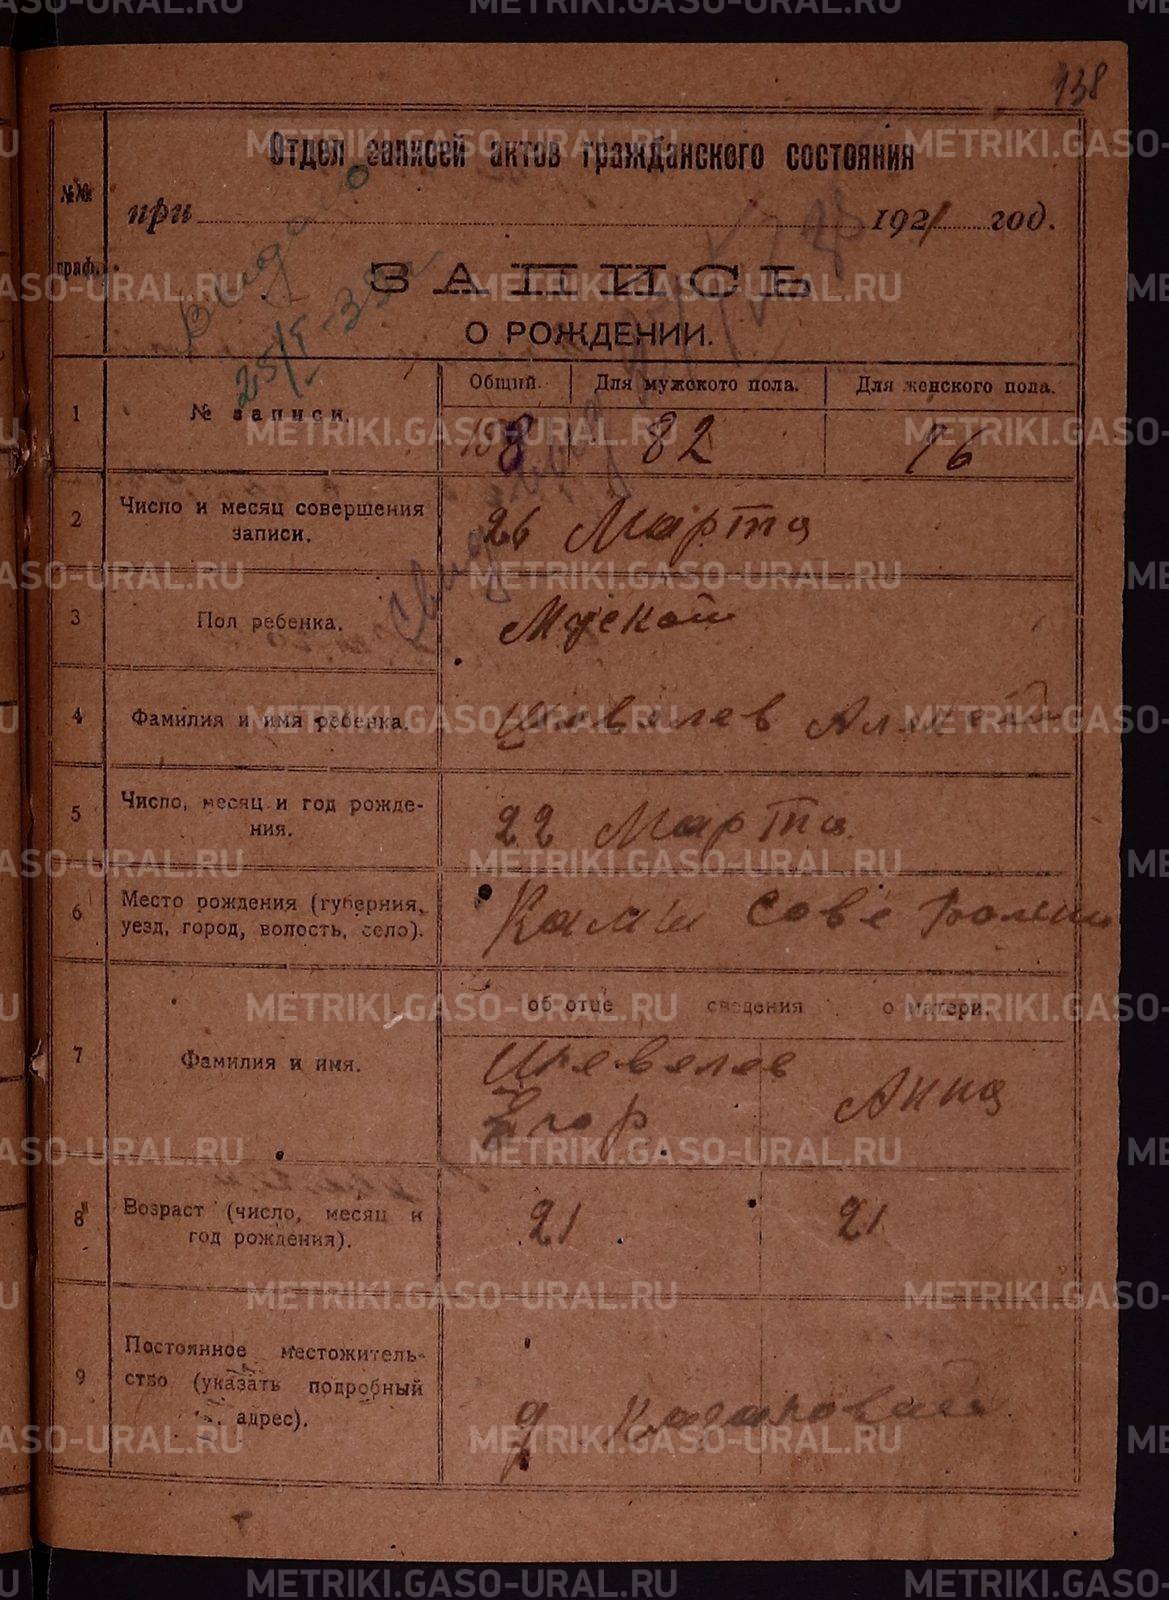 138
Отдел записей актов гражданского состояния
№№ граф.
при 1921 год.
ЗАПИСЬ
О РОЖДЕНИИ.
Видано
25/V-33
Общий. Для мужского пола. Для женского пола.
1 № записи. 158 82 76
2 Число и месяц совершения записи. 26 Марта
3 Пол ребенка. Мускои
4 Фамилия и имя ребенка. Шевелев
5 Число, месяц и год рождения. 22 Марта.
6 Место рождения (губерния, уезд, город, волость, село). Камы Сове
об отце сведения о матери.
7 Фамилия и имя. Шевелев
Егор Анна
8 Возраст (число, месяц и год рождения). 21 21
9 Постоянное местожительство (указать подробный адрес). д
METRIKI.GASO-URAL.RU